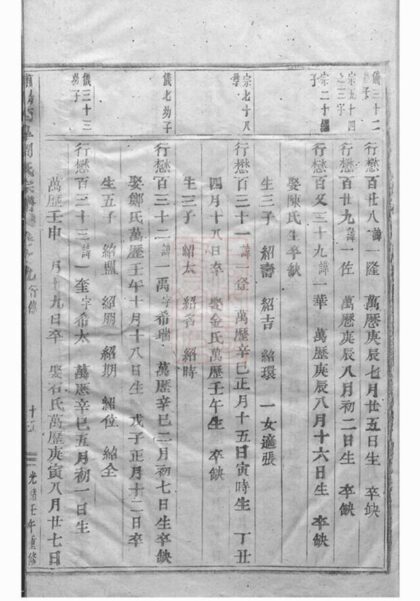 儀三十二子
行懋百廿八諱一隆 萬曆庚辰七月廿五日生 卒缺
宗五十四之三子
行懋百廿九諱一佐 萬曆庚辰八月初二日生 卒缺
宗二十繼子
行懋百又三十九諱一華 萬曆庚辰八月十六日生 卒缺
娶陳氏生卒缺
生三子 紹壽 紹吉 紹環 一女適張
宗七十八
行懋百三十一諱一 萬曆辛巳正月十五日寅時生 丁丑
四月十八日卒 娶金氏萬曆壬午生 卒缺
生三子 紹太 紹 紹時
儀七幼子
行懋百三十二諱一 字希瑞 萬曆辛巳二月初七日生卒缺
娶鄭氏萬曆壬午十月十八日生 戊子正月十二日卒
生五子 紹 紹朋 紹期 紹位 紹全
儀三十三幼子
行懋百三十三諱一奎字希太 萬曆辛巳五月初一日生
萬曆壬申 月十九日卒 娶石氏萬曆庚寅八月廿七日
光緒壬午重修